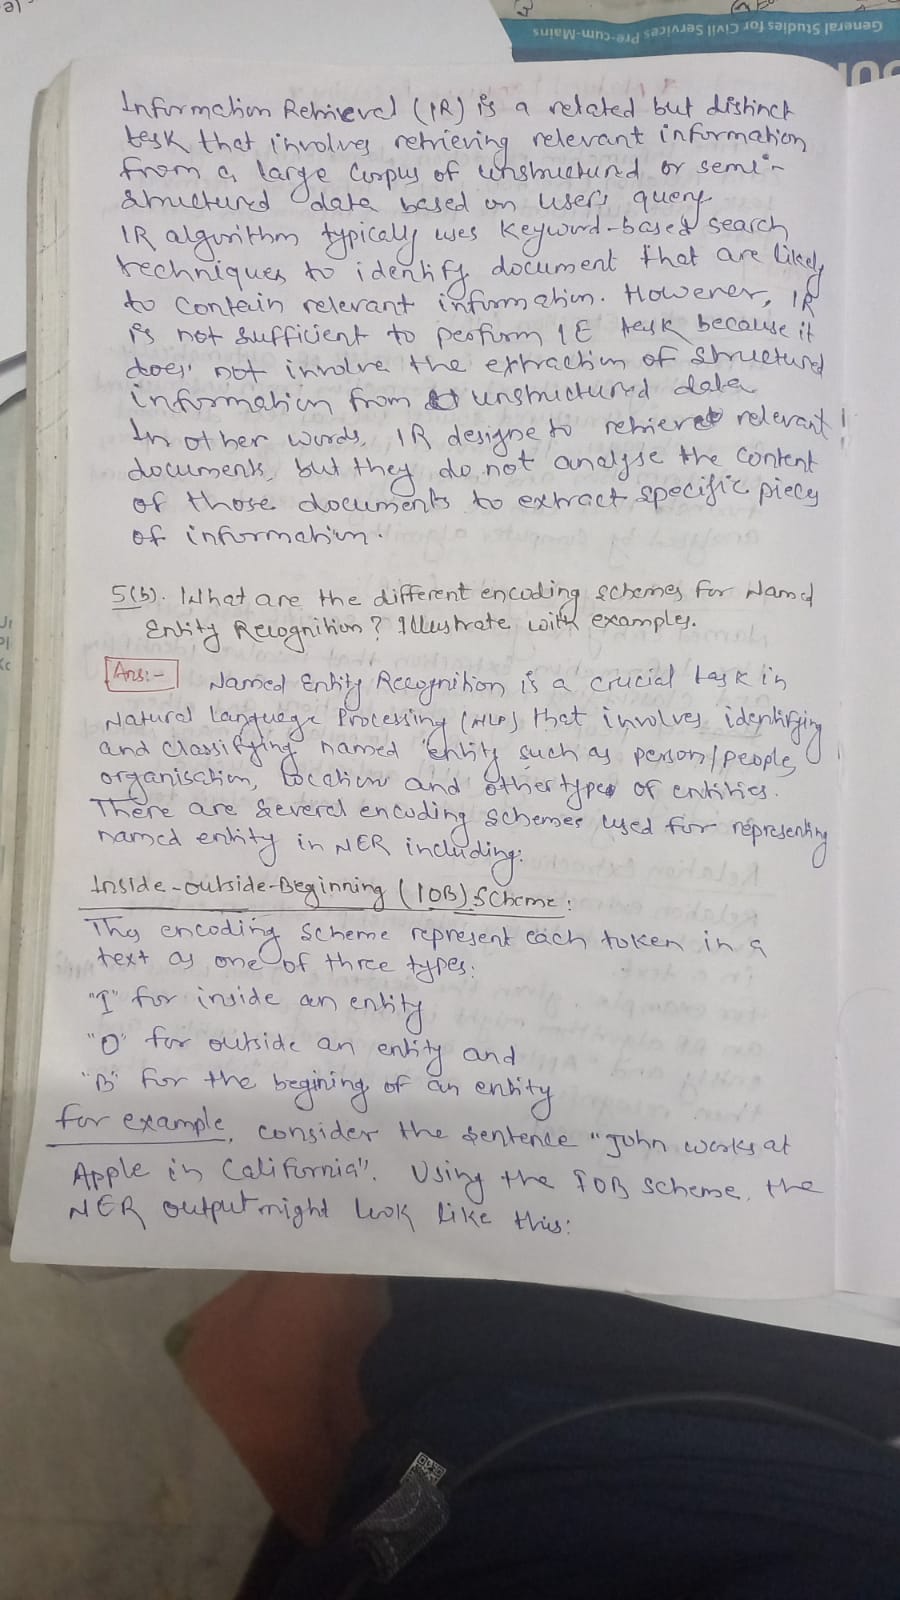 General Studies for Civil Services Pre-cum-Mains
Information Retrieval (IR) is a related but distinct
task that involves retrieving relevant information
from a large Corpus of unstructured or semi-
structured data based on user's query
IR algorithm typically uses Keyword-based search
techniques to identify document that are likely
to contain relevant information. However, IR
is not sufficient to perform IE task because it
does not involve the extraction of structured
information from unstructured data
In other words, IR designe to retrieve relevant
documents, but they do not analyse the content
of those documents to extract specific piecy
of information.
5(b). What are the different encoding schemes for Named
Entity Recognition? Illustrate with examples.
Ans:- Named Entity Recognition is a crucial task in
Natural Language Processing (NLP) that involves identifying
and classifying named entity such as person/people,
organisation, location and other types of entities.
There are several encoding schemes used for representing
named entity in NER including:
Inside-outside-Beginning (IOB) Scheme:
This encoding scheme represent each token in a
text as one of three types:
"I" for inside an entity
"O" for outside an entity and
"B" for the begining of an entity
for example, consider the sentence "John works at
Apple in California". Using the IOB scheme, the
NER output might look like this: